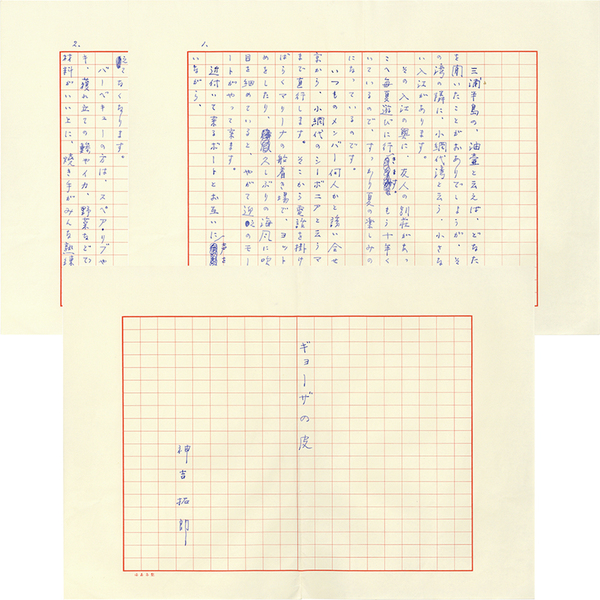 ギョーザの皮
神吉拓郎
1.
三浦半島の、油壷と云えば、どなた
を聞いたことがおありでしょうが、そ
の湾の隣に、小網代湾と云う、小さな
い入江があります。
その入江の奥に、友人の別荘があっ
こへ毎夏遊びに行きます。もう十年く
いているので、すっかり夏の楽しみの
になっているのです。
いつものメンバー何人かと誘い合せ
京から、小網代のシーボニアと云うマ
まで直行します。そこから電話を掛け
ばらくマリーナの船着き場で、ヨット
めをしたり、久しぶりの海風に吹
目を細めていると、やがて迎えのモー
ートがやって来ます。
近付いて来るボートとお互いに声を
いながら、
2.
くなります。
バーベキューの方は、スペア・リブや
キ、獲れ立ての鯵やイカ、野菜などで
材料がいい上に、焼き手がみんな熟練